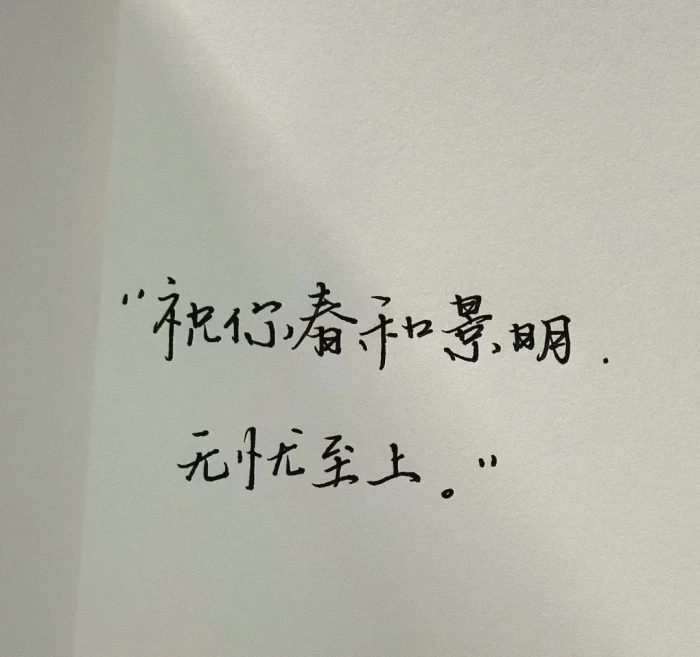 “祝你春和景明.
无忧至上。”